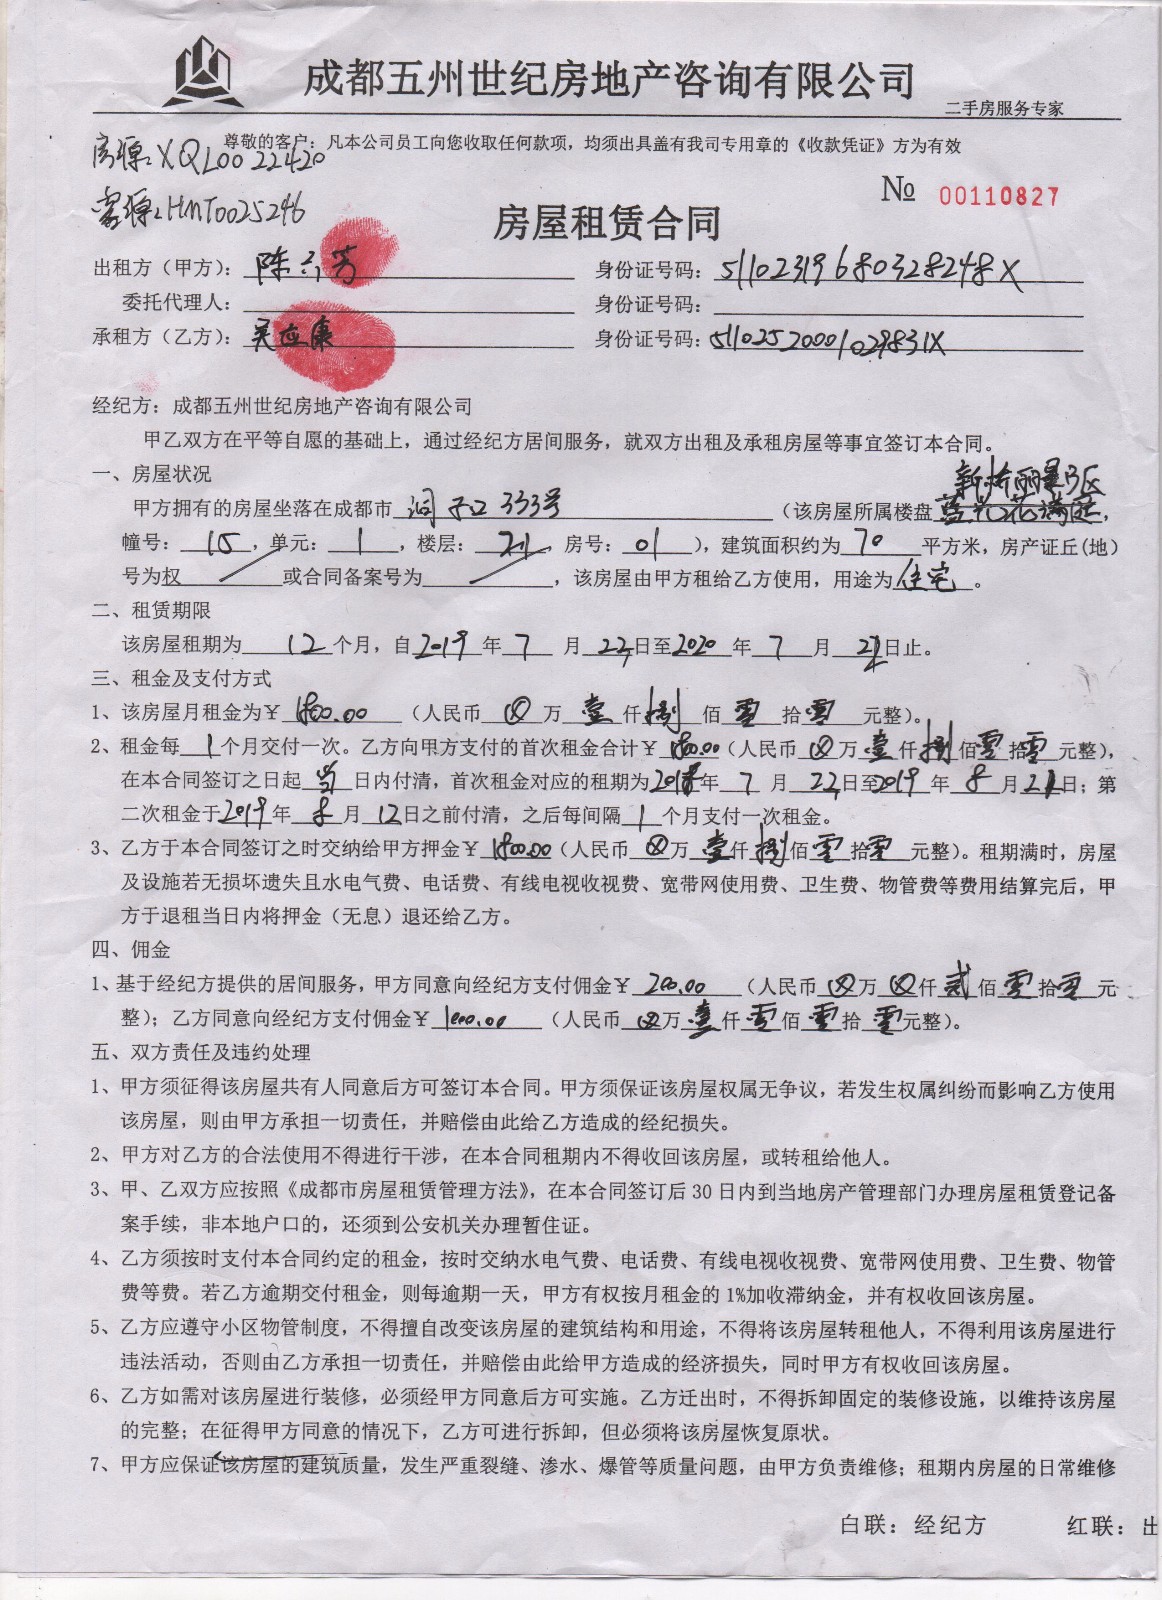 成都五州世纪房地产咨询有限公司
二手房服务专家
尊敬的客户：凡本公司员工向您收取任何款项，均须出具盖有我司专用章的《收款凭证》方为有效
房源：XQL0022420
客源：HMT0025246
№ 00110827
房屋租赁合同
出租方（甲方）： 陈六芳 身份证号码：51102319680328248X
委托代理人： 身份证号码：
承租方（乙方）： 吴应康 身份证号码：51102520001029831X
经纪方：成都五州世纪房地产咨询有限公司
甲乙双方在平等自愿的基础上，通过经纪方居间服务，就双方出租及承租房屋等事宜签订本合同。
一、房屋状况
新桥丽景B区
甲方拥有的房屋坐落在成都市 洞子口333号 （该房屋所属楼盘 ，
幢号： 15 ，单元： 1 ，楼层： 21 ，房号： 01 ），建筑面积约为 70 平方米，房产证丘(地)
号为权 或合同备案号为 ，该房屋由甲方租给乙方使用，用途为 住宅 。
二、租赁期限
该房屋租期为 12 个月，自 2019 年 7 月 22 日至 2020 年 7 月 21 日止。
三、租金及支付方式
1、该房屋月租金为￥ 1800.00 （人民币 ⊗ 万 壹 仟 捌 佰 零 拾 零 元整）。
2、租金每 1 个月交付一次。乙方向甲方支付的首次租金合计￥ 1800.00 （人民币 ⊗ 万 壹 仟 捌 佰 零 拾 零 元整），
在本合同签订之日起 当 日内付清，首次租金对应的租期为 2019 年 7 月 22 日至 2019 年 8 月 21 日；第
二次租金于 2019 年 8 月 12 日之前付清，之后每间隔 1 个月支付一次租金。
3、乙方于本合同签订之时交纳给甲方押金￥ 1800.00 （人民币 ⊗ 万 壹 仟 捌 佰 零 拾 零 元整）。租期满时，房屋
及设施若无损坏遗失且水电气费、电话费、有线电视收视费、宽带网使用费、卫生费、物管费等费用结算完后，甲
方于退租当日内将押金（无息）退还给乙方。
四、佣金
1、基于经纪方提供的居间服务，甲方同意向经纪方支付佣金￥ 200.00 （人民币 ⊗ 万 ⊗ 仟 贰 佰 零 拾 零 元
整）；乙方同意向经纪方支付佣金￥ 1000.00 （人民币 ⊗ 万 壹 仟 零 佰 零 拾 零 元整）。
五、双方责任及违约处理
1、甲方须征得该房屋共有人同意后方可签订本合同。甲方须保证该房屋权属无争议，若发生权属纠纷而影响乙方使用
该房屋，则由甲方承担一切责任，并赔偿由此给乙方造成的经纪损失。
2、甲方对乙方的合法使用不得进行干涉，在本合同租期内不得收回该房屋，或转租给他人。
3、甲、乙双方应按照《成都市房屋租赁管理方法》，在本合同签订后30日内到当地房产管理部门办理房屋租赁登记备
案手续，非本地户口的，还须到公安机关办理暂住证。
4、乙方须按时支付本合同约定的租金，按时交纳水电气费、电话费、有线电视收视费、宽带网使用费、卫生费、物管
费等费。若乙方逾期交付租金，则每逾期一天，甲方有权按月租金的1%加收滞纳金，并有权收回该房屋。
5、乙方应遵守小区物管制度，不得擅自改变该房屋的建筑结构和用途，不得将该房屋转租他人，不得利用该房屋进行
违法活动，否则由乙方承担一切责任，并赔偿由此给甲方造成的经济损失，同时甲方有权收回该房屋。
6、乙方如需对该房屋进行装修，必须经甲方同意后方可实施。乙方迁出时，不得拆卸固定的装修设施，以维持该房屋
的完整；在征得甲方同意的情况下，乙方可进行拆卸，但必须将该房屋恢复原状。
7、甲方应保证该房屋的建筑质量，发生严重裂缝、渗水、爆管等质量问题，由甲方负责维修；租期内房屋的日常维修
白联：经纪方 红联：出